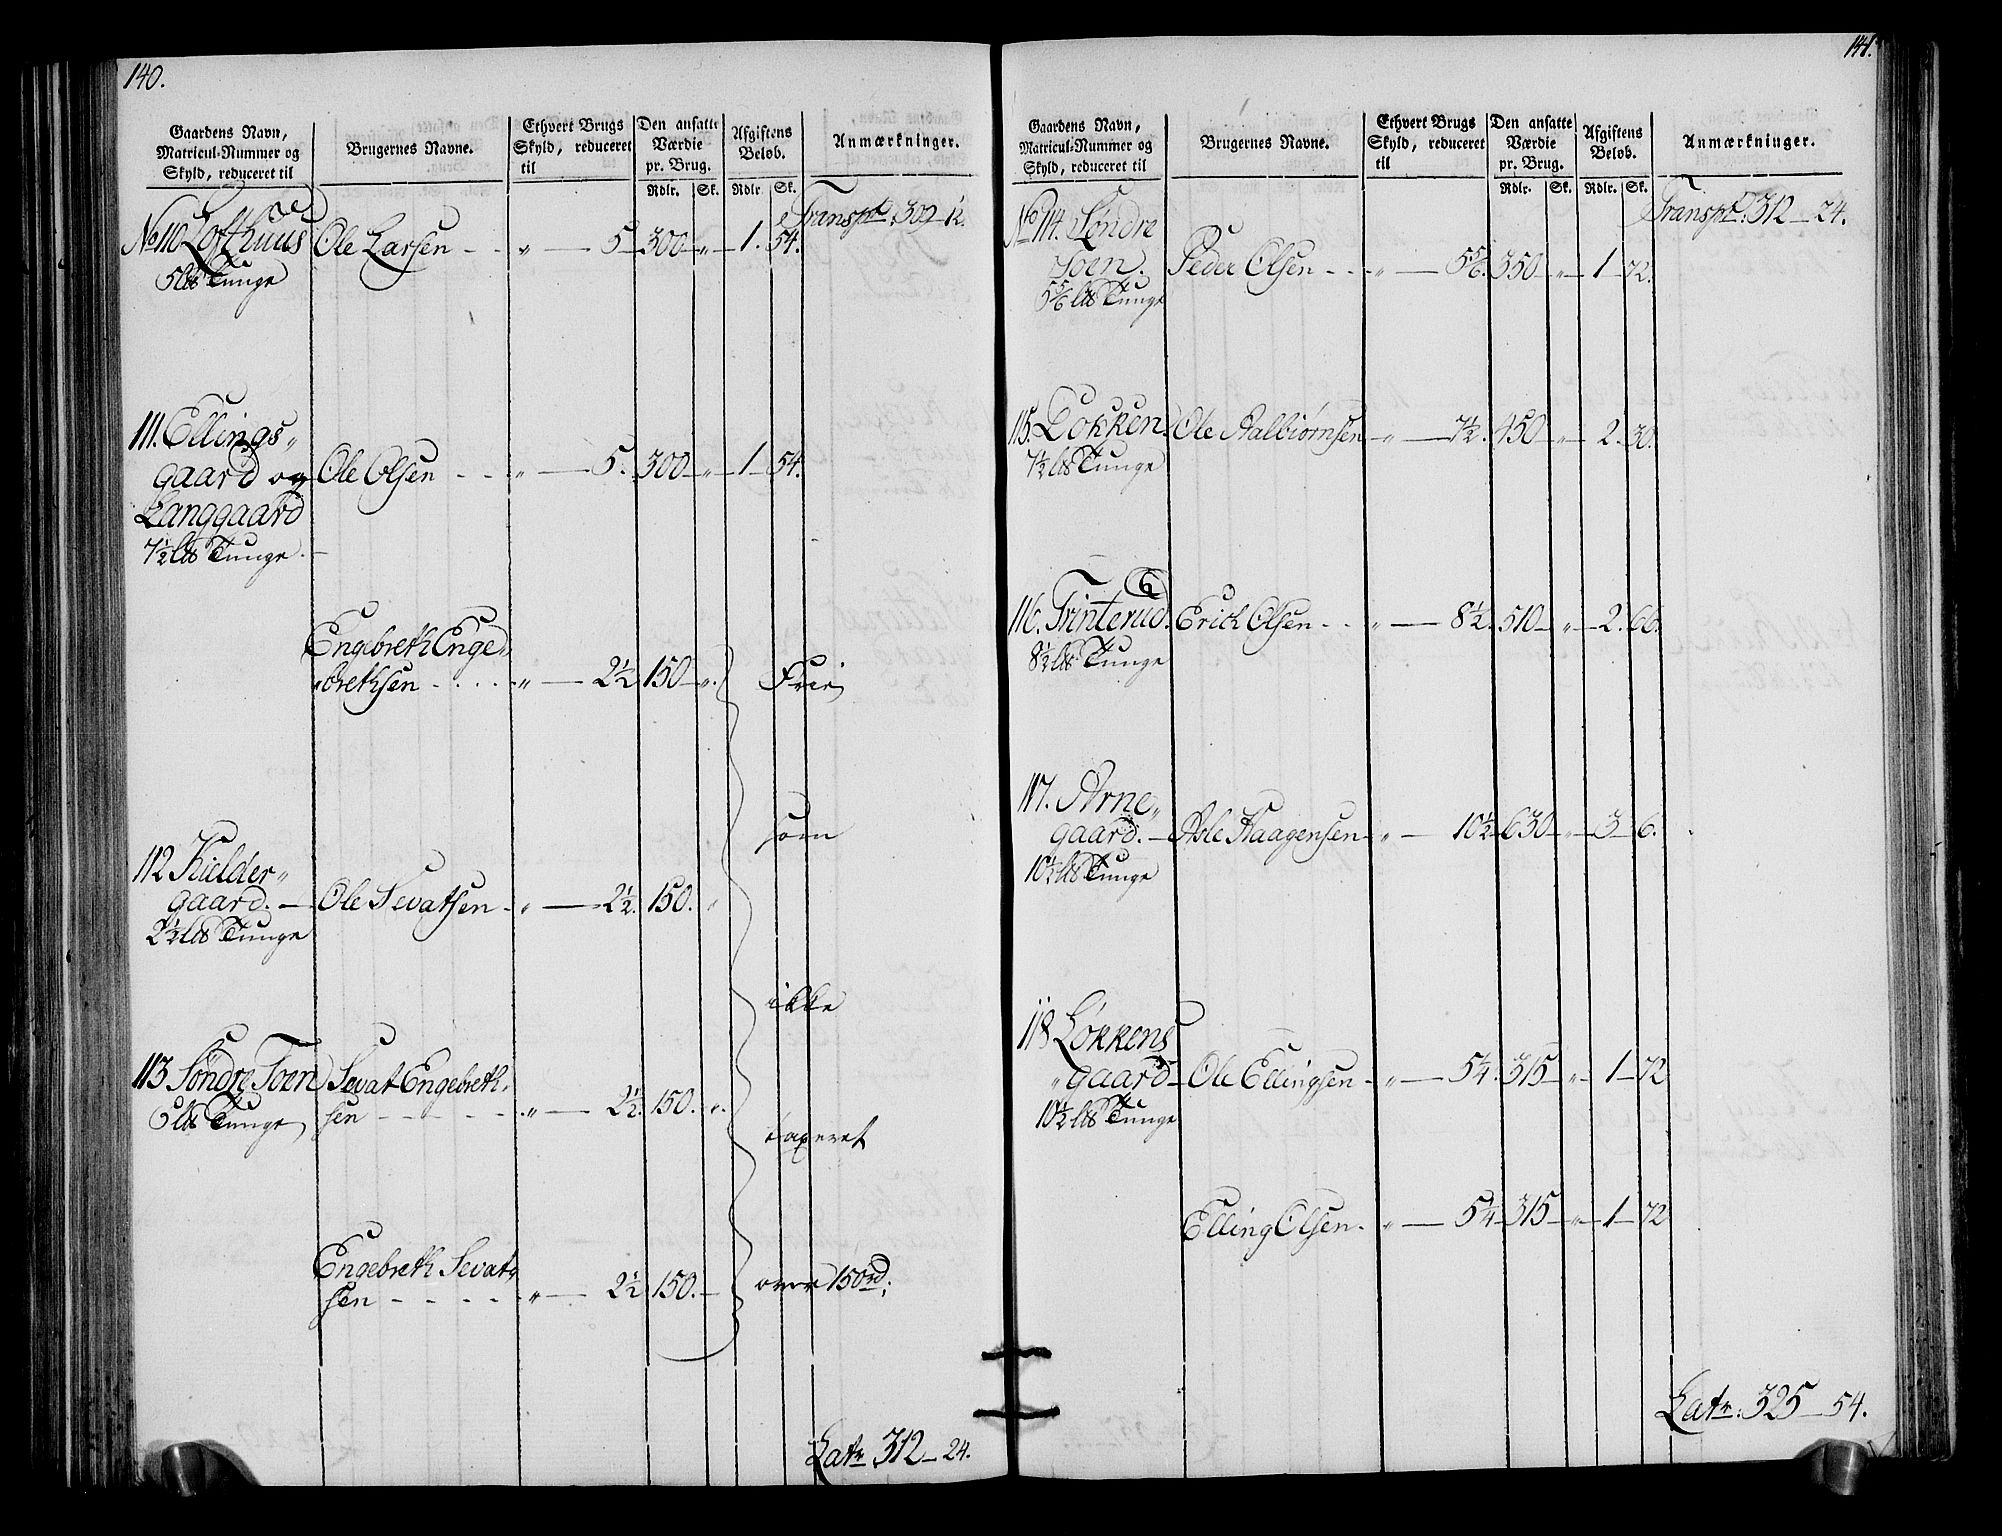 140.
Gaardens Navn, Matricul-Nummer og Skyld, reduceret til
Brugernes Navne.
Ethvert Brugs Skyld, reduceret til
Den ansatte Værdie pr. Brug.
Rdlr. Sk.
Afgiftens Beløb.
Rdlr. Sk.
Anmærkninger.
Transpt. 309 - 12.
No 110 Lofthuus Ole Larsen - - „ — 5 - 300 - „ - 1. 54.
5 lb Tunge
111. Ellings„
gaard og Ole Olsen - - - „ — 5. 300 - „ - 1 - 54.
Langgaard
7½ lb Tunge.
Engebreth Enge„
„brethsen - - - - „ — 2½ 150 - „. Frie
som
112 Kielder„
gaard. — Ole Sevatsen - „ — 2½. 150. „
2½ lb Tunge
ikke
113 Søndre Toen Sevat Engebreth„
5 lb Tunge sen - - - - - „ — 2½. 150. „.
taxeret
Engebreth Sevat„
sen - - - - - „ — 2½ 150. - over 150 rd;
Latr 312 - 24.
141.
Gaardens Navn, Matricul-Nummer og Skyld, reduceret til
Brugernes Navne.
Ethvert Brugs Skyld, reduceret til
Den ansatte Værdie pr. Brug.
Rdlr. Sk.
Afgiftens Beløb.
Rdlr. Sk.
Anmærkninger.
Transpt. 312 - 24.
No 114. Søndre
Toen. Peder Olsen - - - „ — 5⅚. 350 „ - 1 - 72.
5⅚ lb Tunge
115. Dokken. Ole Aslbiørnsen - „ — 7½. 450 „ - 2. 30.
7½ lb Tunge
116. Trinterud. Erich Olsen - - - „ — 8½. 510 - „ - 2. 66.
8½ lb Tunge
117. Arne„
gaard. — Asle Haagensen - „ — 10½ 630 - „ - 3 - 6.
10½ lb Tunge
118 Løkkens
„gaard - Ole Ellingsen - „ — 5¼. 315 - „ - 1 - 72
10½ lb Tunge
Elling Olsen. „ — 5¼ 315 - „ - 1 - 72
Latr: 325 - 54.